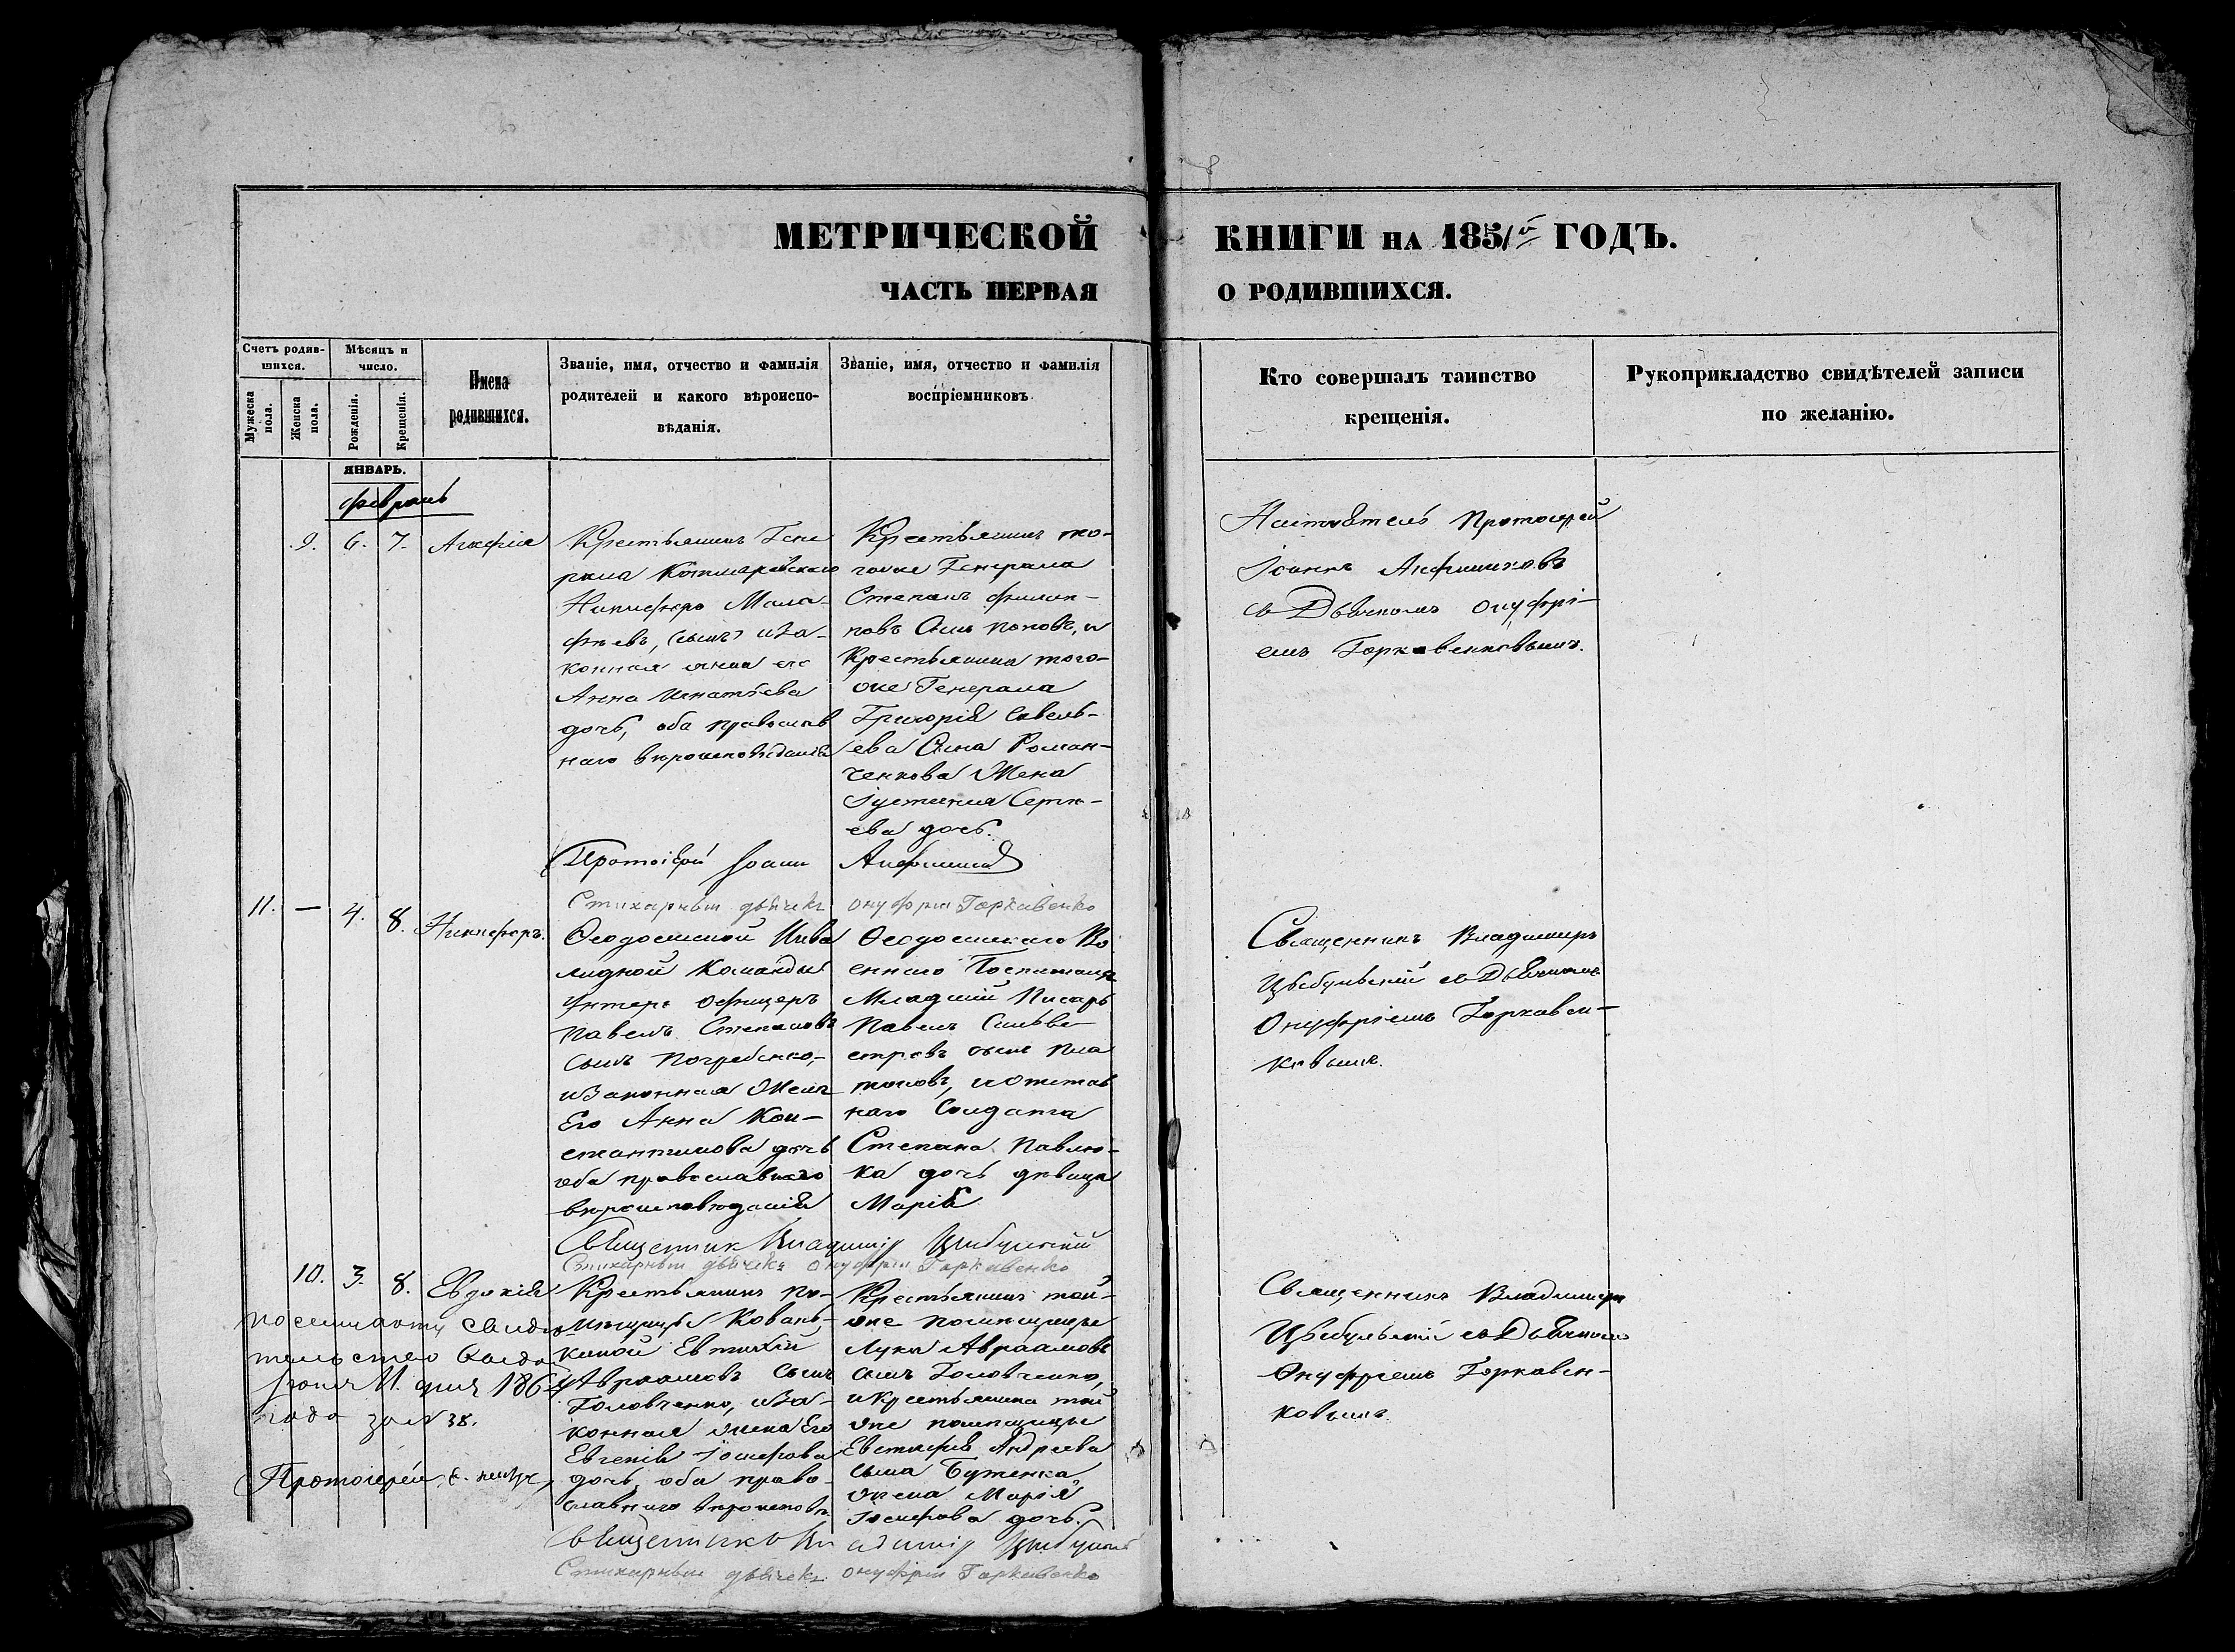 МЕТРИЧЕСКОЙ
КНИГИ НА 1851й ГОДЪ.
ЧАСТЬ ПЕРВАЯ
О РОДИВШИХСЯ.
Счетъ родив-
шихся.
Мужеска
пола.
Женска
пола.
Мѣсяцъ и
число.
Рожденія.
Крещенія.
Имена
родившихся.
Званіе, имя, отчество и фамилія
родителей и какого вѣроиспо-
вѣданія.
Званіе, имя, отчество и фамилія
воспріемниковъ.
Кто совершалъ таинство
крещенія.
Рукоприкладство свидѣтелей записи
по желанію.
ЯНВАРЬ.
февраль
9. 6. 7. Агафія
Крестьянинъ Гене
рала Котляревскаго
Никифоръ Мала-
фѣевъ, сынъ иза-
конная жена его
Анна Игнатьева
дочь, оба православ
наго вѣроисповѣданія
Крестьянинъ то-
гоже Генерала
Степанъ Филип-
повъ Сынъ Поповъ, и
Крестьянина того-
же Генерала
Григорія Савель-
ева Сына Роман-
ченкова Жена
Іустинія Сергѣ-
ева дочь.
Настоятель Протоіерей
Іоаннъ
съ Дьячкомъ Онуфрі-
емъ Горкавенковымъ.
Протоіерей Іоаннъ
Стихарный дьячекъ Онуфрій Горкавенко
11. — 4. 8. Никифоръ.
Ѳеодосійской Инва
лидной Команды
Унтеръ Офицеръ
Павелъ Степановъ
Сынъ Погребенко,
изаконная Жена
Его Анна Кон-
стантинова дочь
оба православнаго
вѣроисповѣданія
Ѳеодосійскаго Во
еннаго Госпиталя
Младшій Писарь
Павелъ Сильве-
стровъ сынъ Пла
тоновъ, и отстав
наго Солдата
Степана Павлю-
ка дочь дѣвица
Марія
Священникъ Владимиръ
Цыбульскій съ Дьячкомъ
Онуфріемъ Горкавен-
ковымъ.
Священник Владимір Цыбульскій
Стихарный дьячекъ Онуфрій Горкавенко
10. 3. 8. Евдокія
по сему акту свидѣ
тельство выдано
11. дня 186
года за № 38.
Протоіерей
Крестьянинъ по-
мѣщицы
Евтихій
Авраамовъ Сынъ
Головченко, иза-
конная жена Его
Евгенія Іосифова
дочь, оба право-
славнаго вѣроисповѣ.
Крестьянинъ той-
же помѣщицы
Лука Авраамовъ
сынъ Головченко,
и крестьянина той
же помѣщицы
Евстафія Андреева
сына Бутенка
жена Марія
Іосифова дочь.
Священникъ Владимиръ
Цыбульскій съ Дьячкомъ
Онуфріемъ Горкавен-
ковымъ.
Священникъ Владимір Цыбульскій
Стихарный дьячекъ Онуфрій Горкавенко